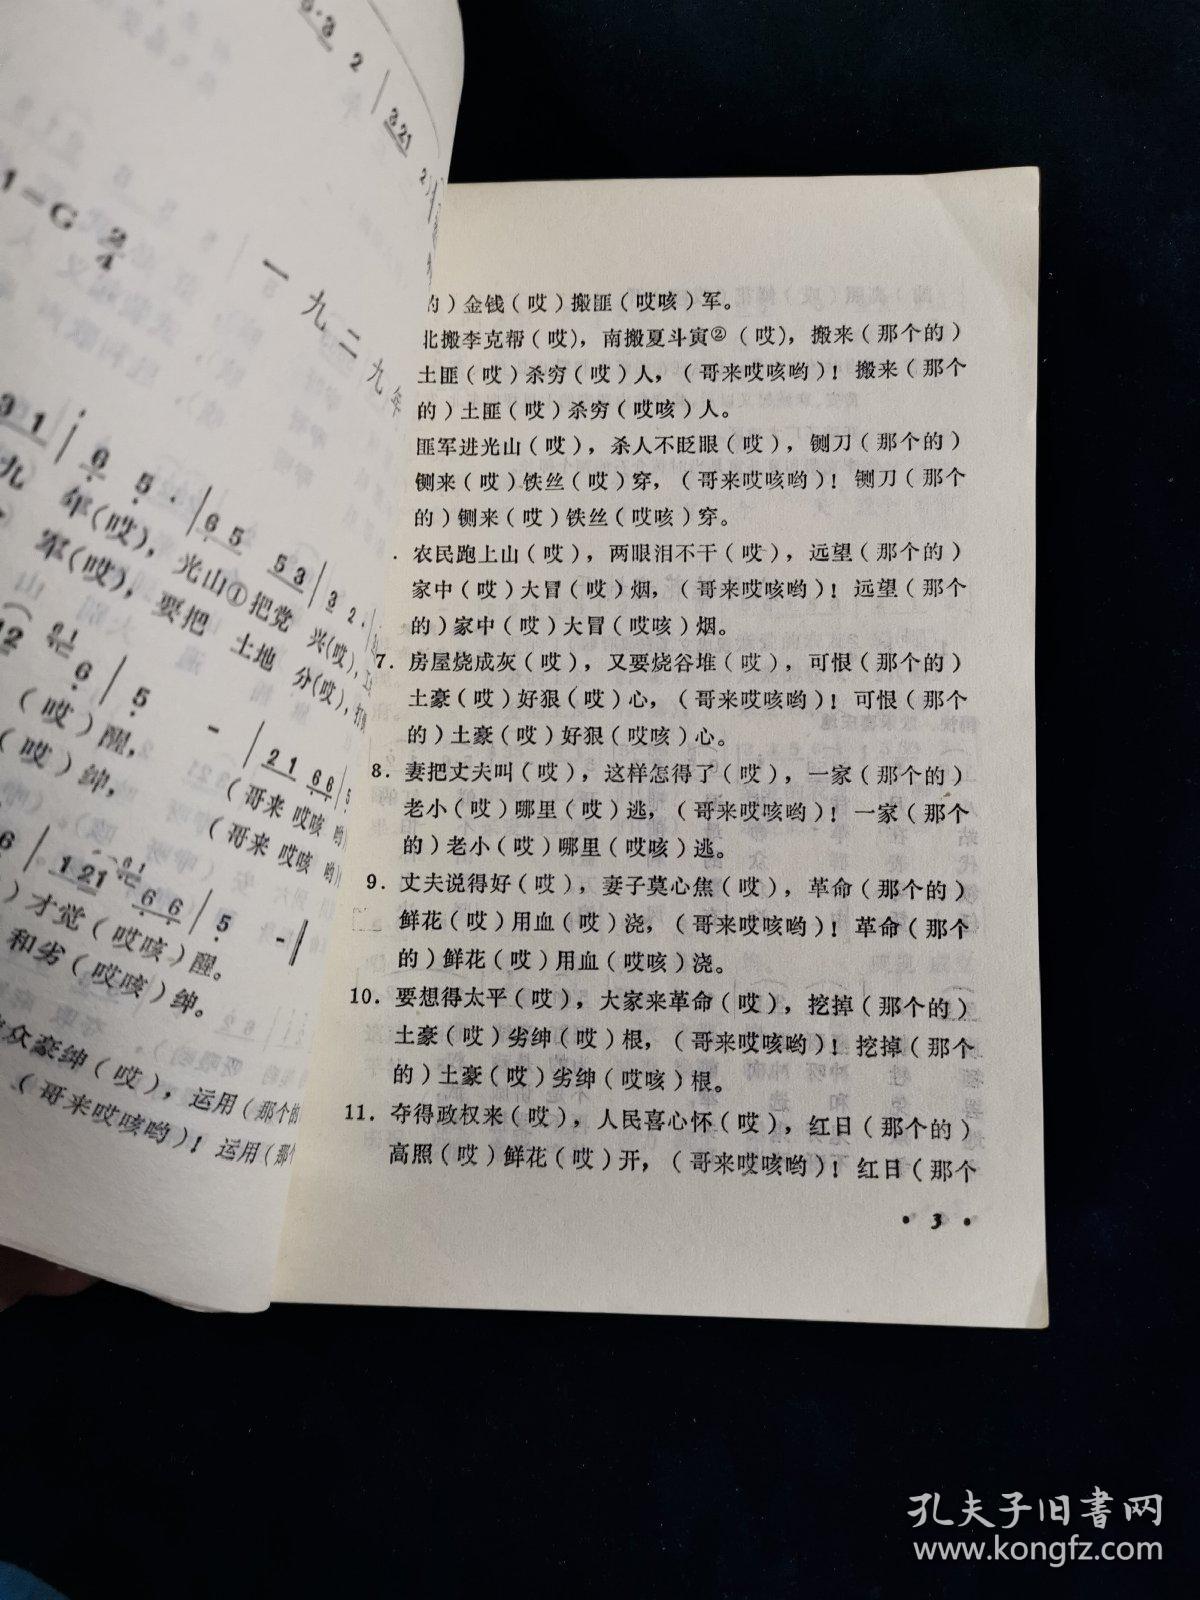 3 2 | 321
1=G 2/4
一九二九年
31 | 6 5. | 65 53 | 3 2.
九 年(哎)，光山①把党 兴(哎)，
军(哎)，要把 土地 分(哎)，
6 | 5 - | 21 66
(哎)醒， (哥来 哎咳 哟)
(哎)绅， (哥来 哎咳 哟)
6 | 121 66 | 5 - |
)才觉(哎咳)醒。
和劣(哎咳)绅。
众豪绅(哎)，运用(那个的
(哥来哎咳哟)！运用(那个
的)金钱(哎)搬匪(哎咳)军。
北搬李克帮(哎)，南搬夏斗寅②(哎)，搬来(那个的)
土匪(哎)杀穷(哎)人，(哥来哎咳哟)！搬来(那个
的)土匪(哎)杀穷(哎咳)人。
匪军进光山(哎)，杀人不眨眼(哎)，铡刀(那个的)
铡来(哎)铁丝(哎)穿，(哥来哎咳哟)！铡刀(那个
的)铡来(哎)铁丝(哎咳)穿。
农民跑上山(哎)，两眼泪不干(哎)，远望(那个的)
家中(哎)大冒(哎)烟，(哥来哎咳哟)！远望(那个
的)家中(哎)大冒(哎咳)烟。
7．房屋烧成灰(哎)，又要烧谷堆(哎)，可恨(那个的)
土豪(哎)好狠(哎)心，(哥来哎咳哟)！可恨(那个
的)土豪(哎)好狠(哎咳)心。
8．妻把丈夫叫(哎)，这样怎得了(哎)，一家(那个的)
老小(哎)哪里(哎)逃，(哥来哎咳哟)！一家(那个
的)老小(哎)哪里(哎咳)逃。
9．丈夫说得好(哎)，妻子莫心焦(哎)，革命(那个的)
鲜花(哎)用血(哎)浇，(哥来哎咳哟)！革命(那个
的)鲜花(哎)用血(哎咳)浇。
10．要想得太平(哎)，大家来革命(哎)，挖掉(那个的)
土豪(哎)劣绅(哎)根，(哥来哎咳哟)！挖掉(那个
的)土豪(哎)劣绅(哎咳)根。
11．夺得政权来(哎)，人民喜心怀(哎)，红日(那个的)
高照(哎)鲜花(哎)开，(哥来哎咳哟)！红日(那个
• 3 •
孔夫子旧书网
www.kongfz.com